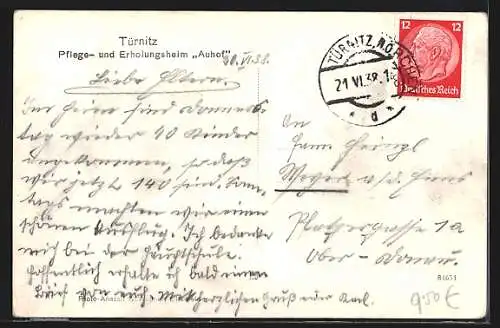 Türnitz
Pflege- und Erholungsheim „Auhof"
20.VI.38.
Liebe Eltern!
Zu Heim sind Donners-
tag wieder 40 Kinder
angekommen, so daß
wir jetzt 140 sind. Sonn-
tags machten wir einen
schönen Ausflug. Ich bedanke
mich bei der Hauptschule.
Hoffentlich erhalte ich bald einen
Brief von euch. Mit herzlichen Gruß euer Karl.
Photo-Ansich
TÜRNITZ, N.Ö.
21.VI.38
* d *
12 12
Deutsches Reich
An
Herrn
Weyer a./d. Enns
Platzergasse 1a
Ober-Donau.
950 £